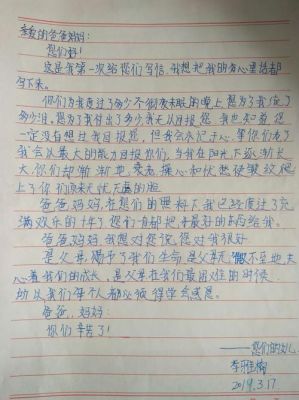 亲爱的爸爸妈妈:
您们好!
这是我第一次给您们写信,我想把我的知心真话都
写下来。
你们为我度过了多少不彻夜未眠的晚上,您为了我流了
多少泪,您为了我付出了多少,我无以目报您,我也知道,您
一定没有想过我目报您,但我会永记于心,等你们老了
我会以最大的能力目报你们,当我在阳光下逐渐长
大你们却渐渐地衰老,操心和忧愁使皱纹爬
上了你们原来无忧无虑的脸。
爸爸妈妈,在您们的照料下,我已经度过了充
满欢乐的十年了,您们一直都把最好的东西给我。
爸爸,妈妈,我想对您说,您对我很好
是父母赐予了我们生命,是父母无微不至地关
心着我们的成长,是父母在我们最困难的时候
所以我们每个人都必须得学会感恩。
爸爸,妈妈:
你们辛苦了!
——您们的女儿
李雅楠
2019.3.17